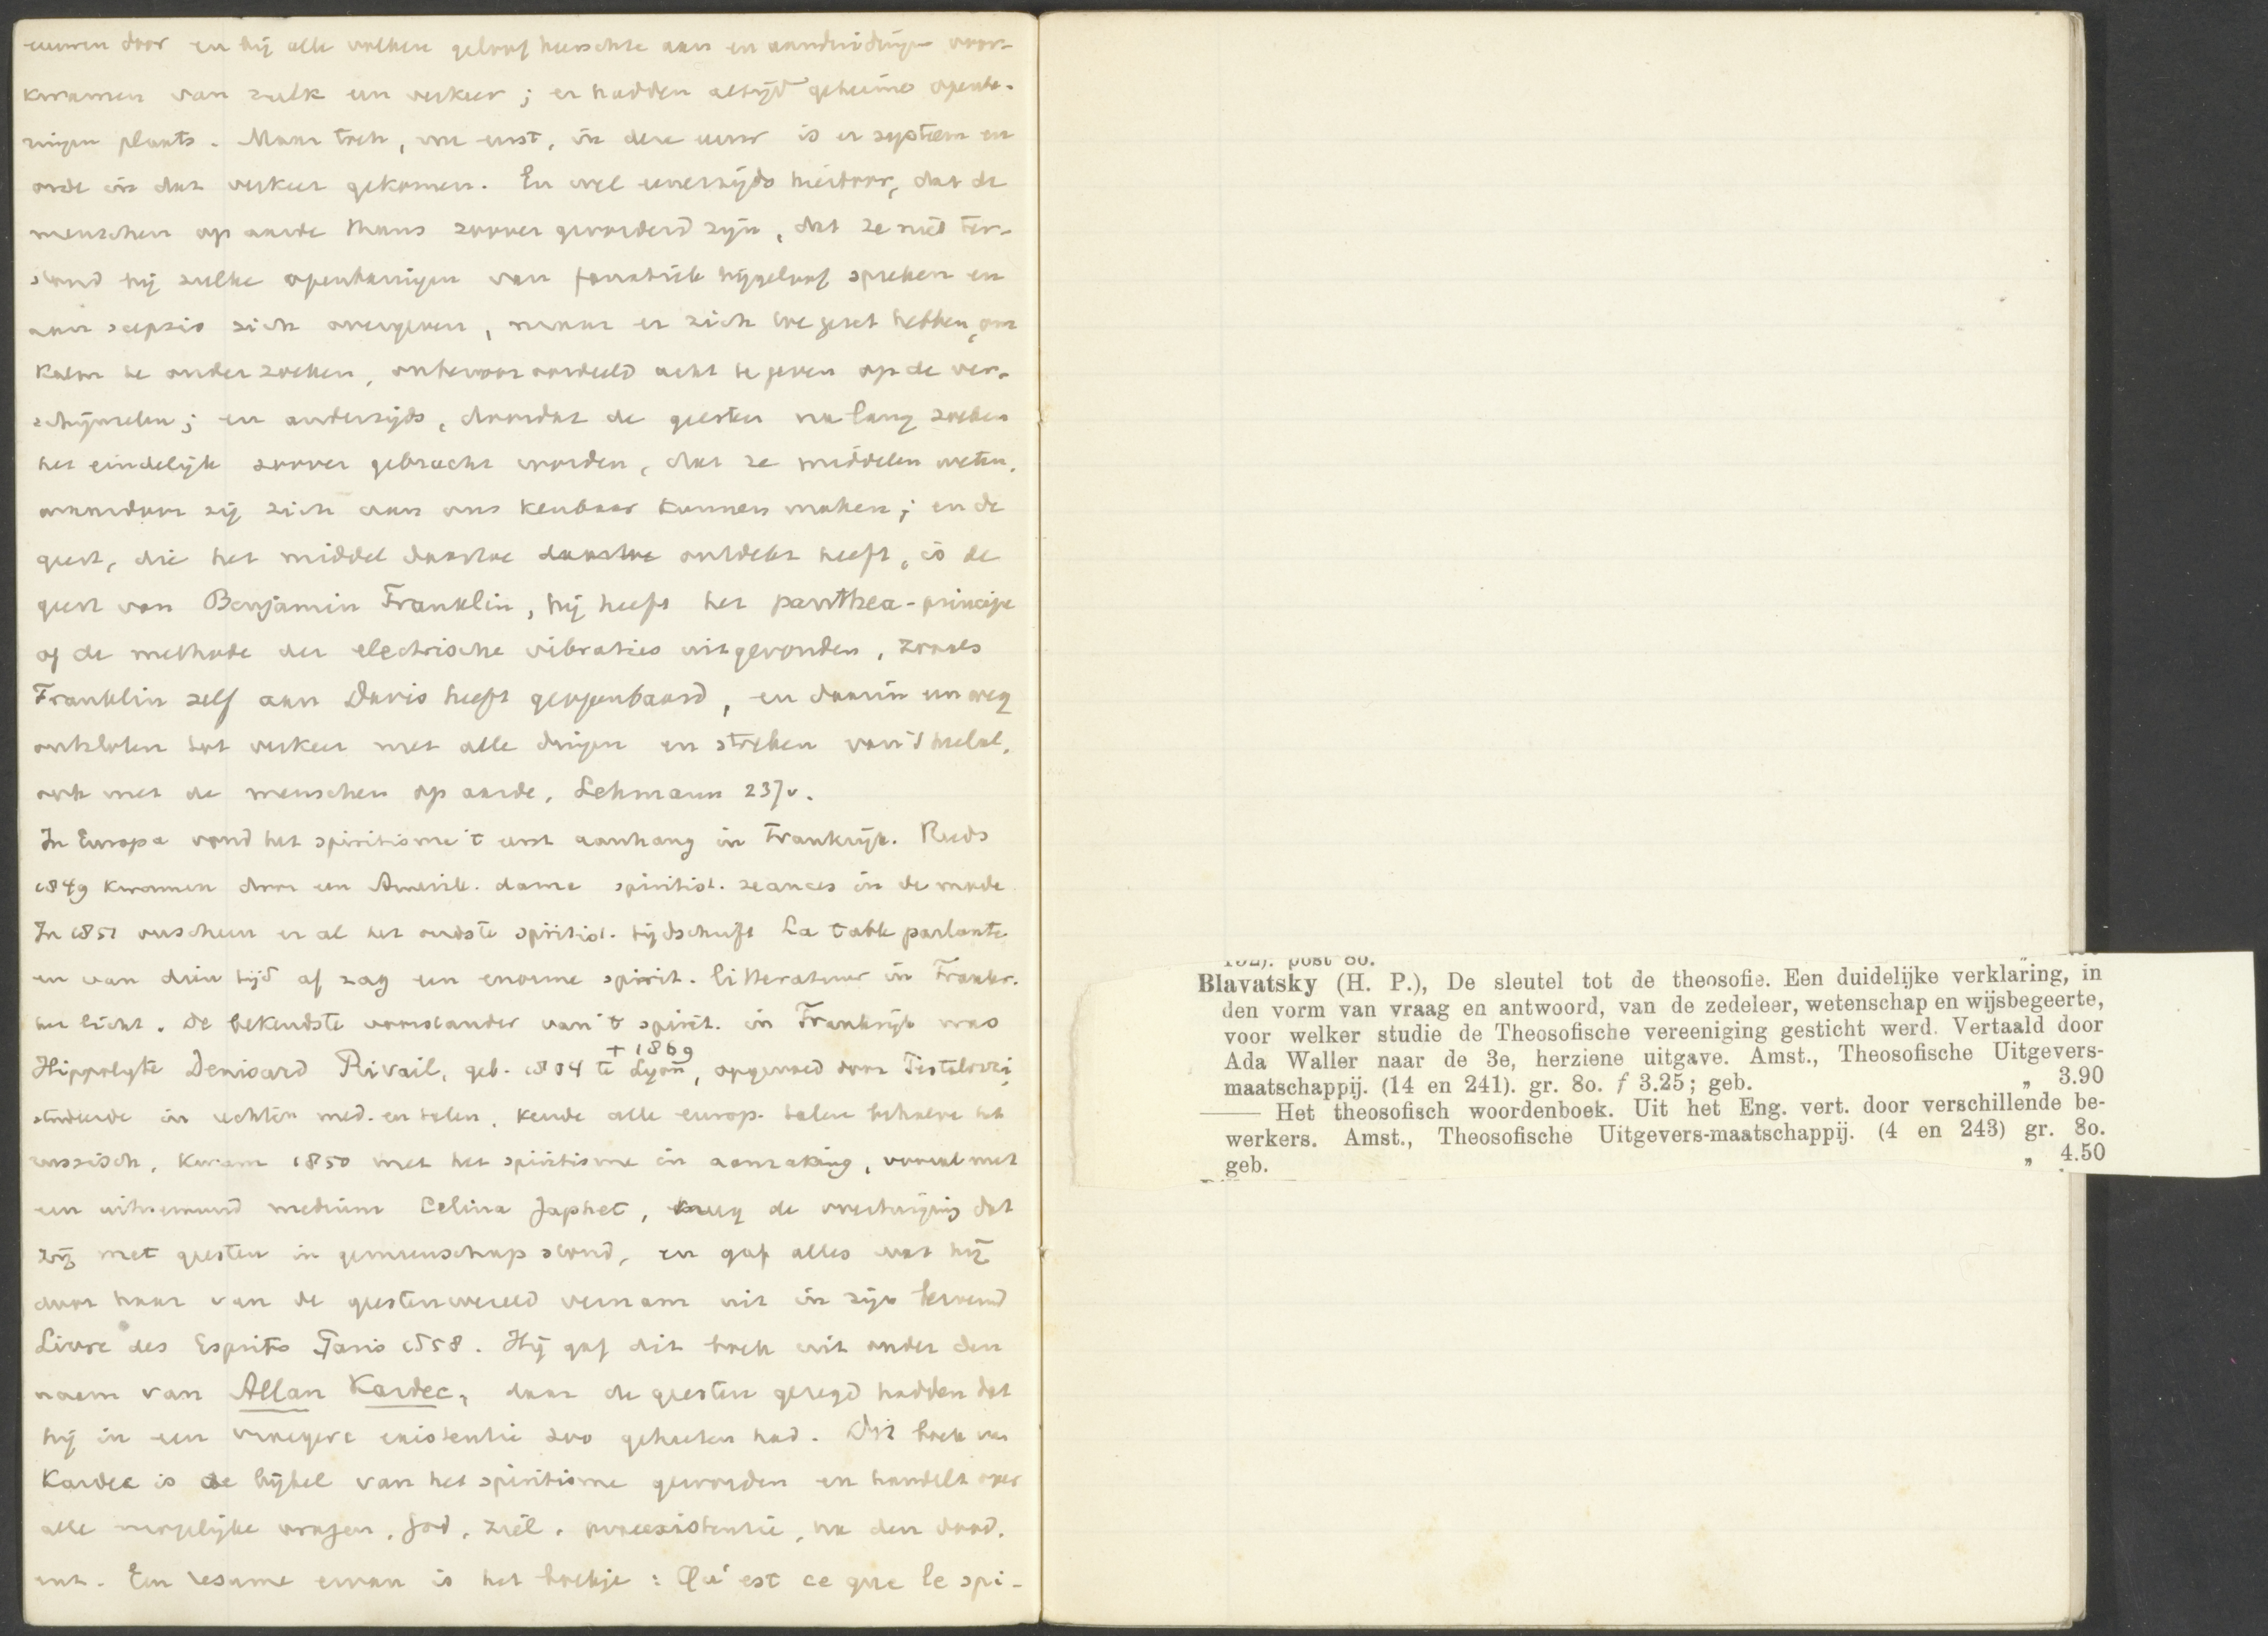 eeuwen door en bij alle volken geloof heerschte aan en aanduidingen voor-
kwamen van zulk een verkeer; er hadden altijd geheime openba-
ringen plaats. Maar toch, nu eerst, in deze eeuw is er systeem en
orde in dat verkeer gekomen. En wel eenerzijds hierdoor, dat de
menschen op aarde thans zoover gevorderd zijn, dat ze niet ter-
stond bij zulke openbaringen van fanatiek bijgeloof spreken en
aan scepsis zich overgeven, maar er zich toe gezet hebben, om
kalm te onderzoeken, onbevooroordeeld acht te geven op de ver-
schijnselen; en anderzijds, doordat de geesten na lang zoeken
het eindelijk zoover gebracht worden, dat ze middelen weten,
waardoor zij zich aan ons kenbaar kunnen maken; en de
geest, die het middel daartoe daartoe ontdekt heeft, is de
geest van Benjamin Franklin, hij heeft het panthea-principe
of de methode der electrische vibraties uitgevonden, zooals
Franklin zelf aan Davis heeft geopenbaard, en daarin een weg
ontsloten tot verkeer met alle dingen en streken van 't heelal,
ook met de menschen op aarde, Lehmann 237v.
In Europa vond het spiritisme 't eerst aanhang in Frankrijk. Reeds
1849 kwamen door een Amerik. dame spiritist. seances in de mode
In 1851 verscheen er al het oudste spiritist. tijdschrift La table parlante
en van dien tijd af zag een enorme spirit. litteratuur in Frankr.
het licht. De bekendste voorstander van 't spirit. in Frankrijk was
+ 1869
Hippolyte Denisard Rivail, geb. 1804 te Lyon, opgevoed door Pestalozzi,
studeerde in rechten med. en talen, kende alle europ. talen behalve het
russisch, kwam 1850 met het spiritisme in aanraking, vooral met
een uitnemend medium Celina Japhet, kreeg de overtuiging dat
zij met geesten in gemeenschap stond, en gaf alles wat hij
door haar van de geestenwereld vernam uit in zijn beroemd
Livre des Esprits Paris 1858. Hij gaf dit boek uit onder den
naam van Allan Kardec, daar de geesten gezegd hadden dat
hij in een vroegere existentie zoo geheeten had. Dit boek van
Kardec is de bijbel van het spiritisme geworden en handelt over
alle mogelijke vragen, God, ziel, praeexistentie, na den dood,
enz. Een resume ervan is het boekje: Qu'est ce que le spi-
192). post 8o.
Blavatsky (H. P.), De sleutel tot de theosofie. Een duidelijke verklaring, in
den vorm van vraag en antwoord, van de zedeleer, wetenschap en wijsbegeerte,
voor welker studie de Theosofische vereeniging gesticht werd. Vertaald door
Ada Waller naar de 3e, herziene uitgave. Amst., Theosofische Uitgevers-
maatschappij. (14 en 241). gr. 8o. f 3.25; geb. „ 3.90
—— Het theosofisch woordenboek. Uit het Eng. vert. door verschillende be-
werkers. Amst., Theosofische Uitgevers-maatschappij. (4 en 243) gr. 8o.
geb. „ 4.50